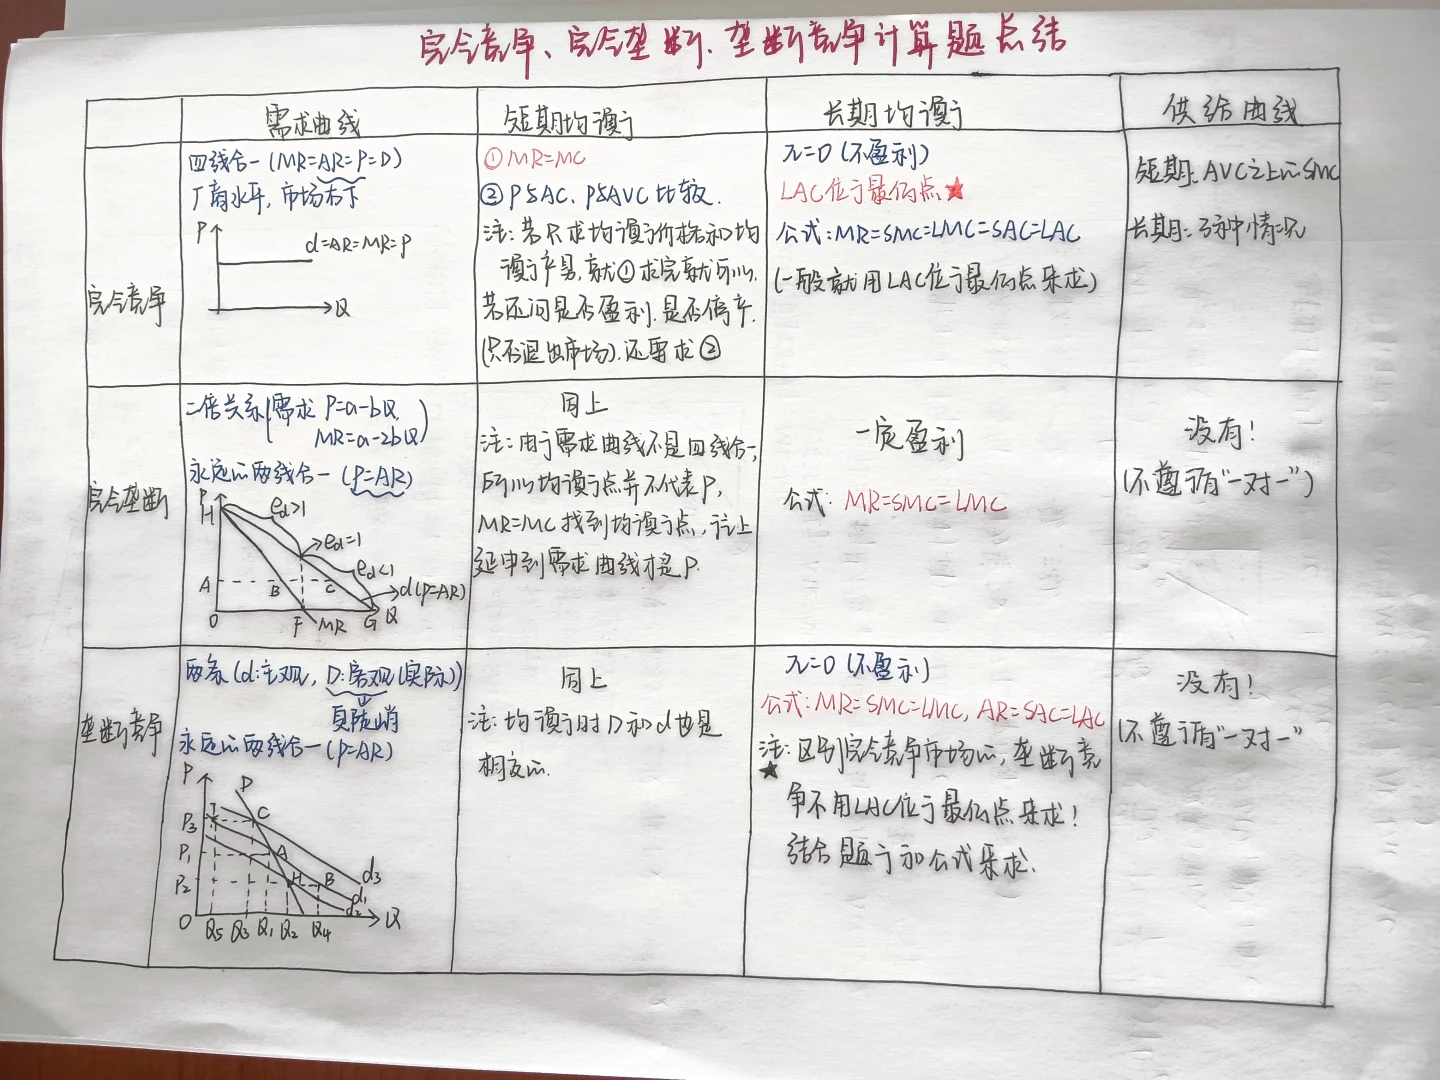 完全竞争、完全垄断、垄断竞争计算题总结
需求曲线
短期均衡
长期均衡
供给曲线
完全竞争
四线合一(MR=AR=P=D)
厂商水平,市场右下
P
d=AR=MR=P
Q
①MR=MC
②P与AC、P与AVC比较.
注:若只求均衡价格和均
衡产量,就①求完就可以.
若还问是否盈利.是否停产.
(是否退出市场).还需求②
π=0(不盈利)
LAC位于最低点★
公式:MR=SMC=LMC=SAC=LAC
(一般就用LAC位于最低点来求)
短期:AVC之上的SMC
长期:三种情况
完全垄断
二倍关系(需求 P=a-bQ
MR=a-2bQ)
永远的两线合一(P=AR)
P
H
ed>1
ed=1
ed<1
A
B
C
d(P=AR)
O
F
MR
G
Q
同上
注:由于需求曲线不是四线合一,
所以均衡点并不代表P,
MR=MC找到均衡点,往上
延申到需求曲线才是P.
一定盈利
公式:MR=SMC=LMC
没有!
(不遵循"一对一")
垄断竞争
两条(d:主观,D:客观(实际))
更陡峭
永远的两线合一(P=AR)
P
D
J
C
P3
P1
A
P2
H
B
d3
d1
d2
O
Q5
Q3
Q1
Q2
Q4
Q
同上
注:均衡时D和d也是
相交的.
π=0(不盈利)
公式:MR=SMC=LMC, AR=SAC=LAC
注:区别完全竞争市场的,垄断竞
★
争不用LAC位于最低点来求!
结合题干和公式来求.
没有!
(不遵循"一对一"